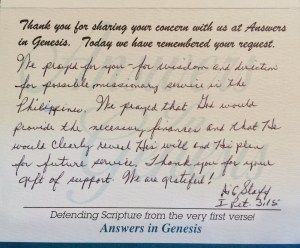 Thank you for sharing your concern with us at Answers
in Genesis. Today we have remembered your request.
We prayed for you - for wisdom and direction
for possible missionary service in the
Philippines. We prayed that God would
provide the necessary finances and that He
would clearly reveal His will and His plan
for future service. Thank you for your
gift of support. We are grateful!
AiG Staff
I Pet 3:15
Defending Scripture from the very first verse!
Answers in Genesis